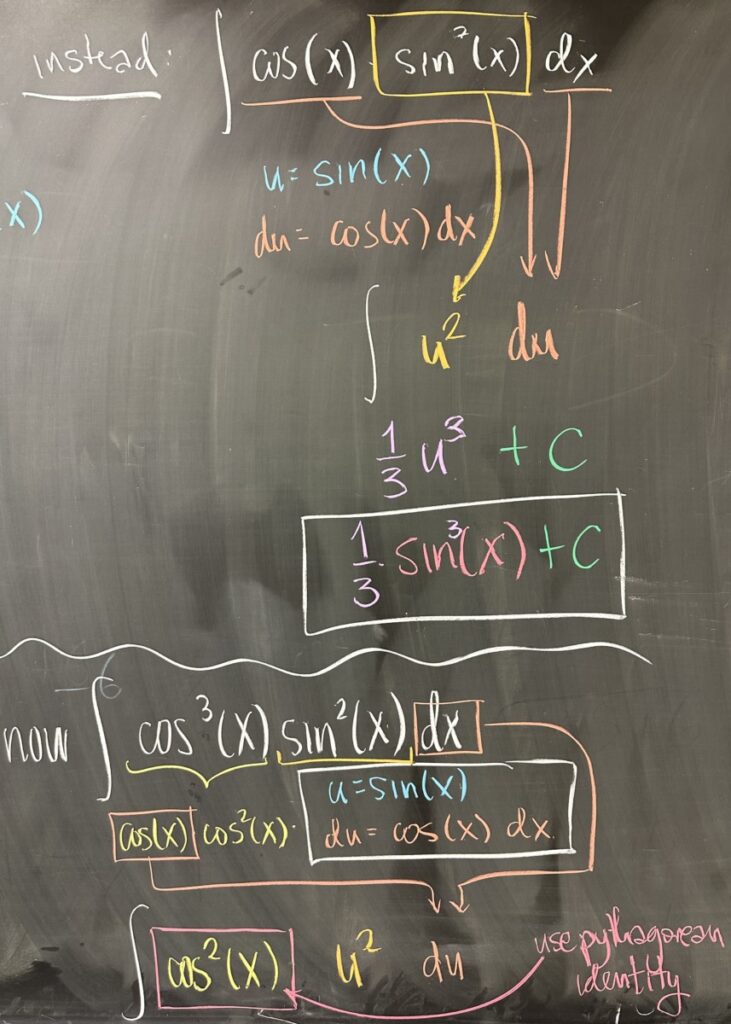 instead: ∫ cos(x) · sin²(x) dx
u = sin(x)
x)
du = cos(x) dx
∫ u² du
1/3 u³ + C
1/3 · sin³(x) + C
now ∫ cos³(x) sin²(x) dx
u = sin(x)
cos(x) cos²(x) · du = cos(x) dx
∫ cos²(x) u² du
use pythagorean
identity